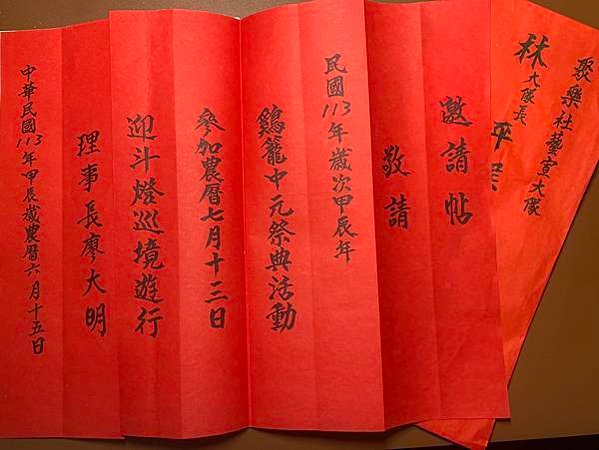 聚樂社藝宣大隊
林大隊長 平
邀請帖
敬請
民國113年歲次甲辰年
鷄籠中元祭典活動
參加農曆七月十三日
迎斗燈巡境遊行
理事長廖大明
中華民國113年甲辰歲農曆六月十五日